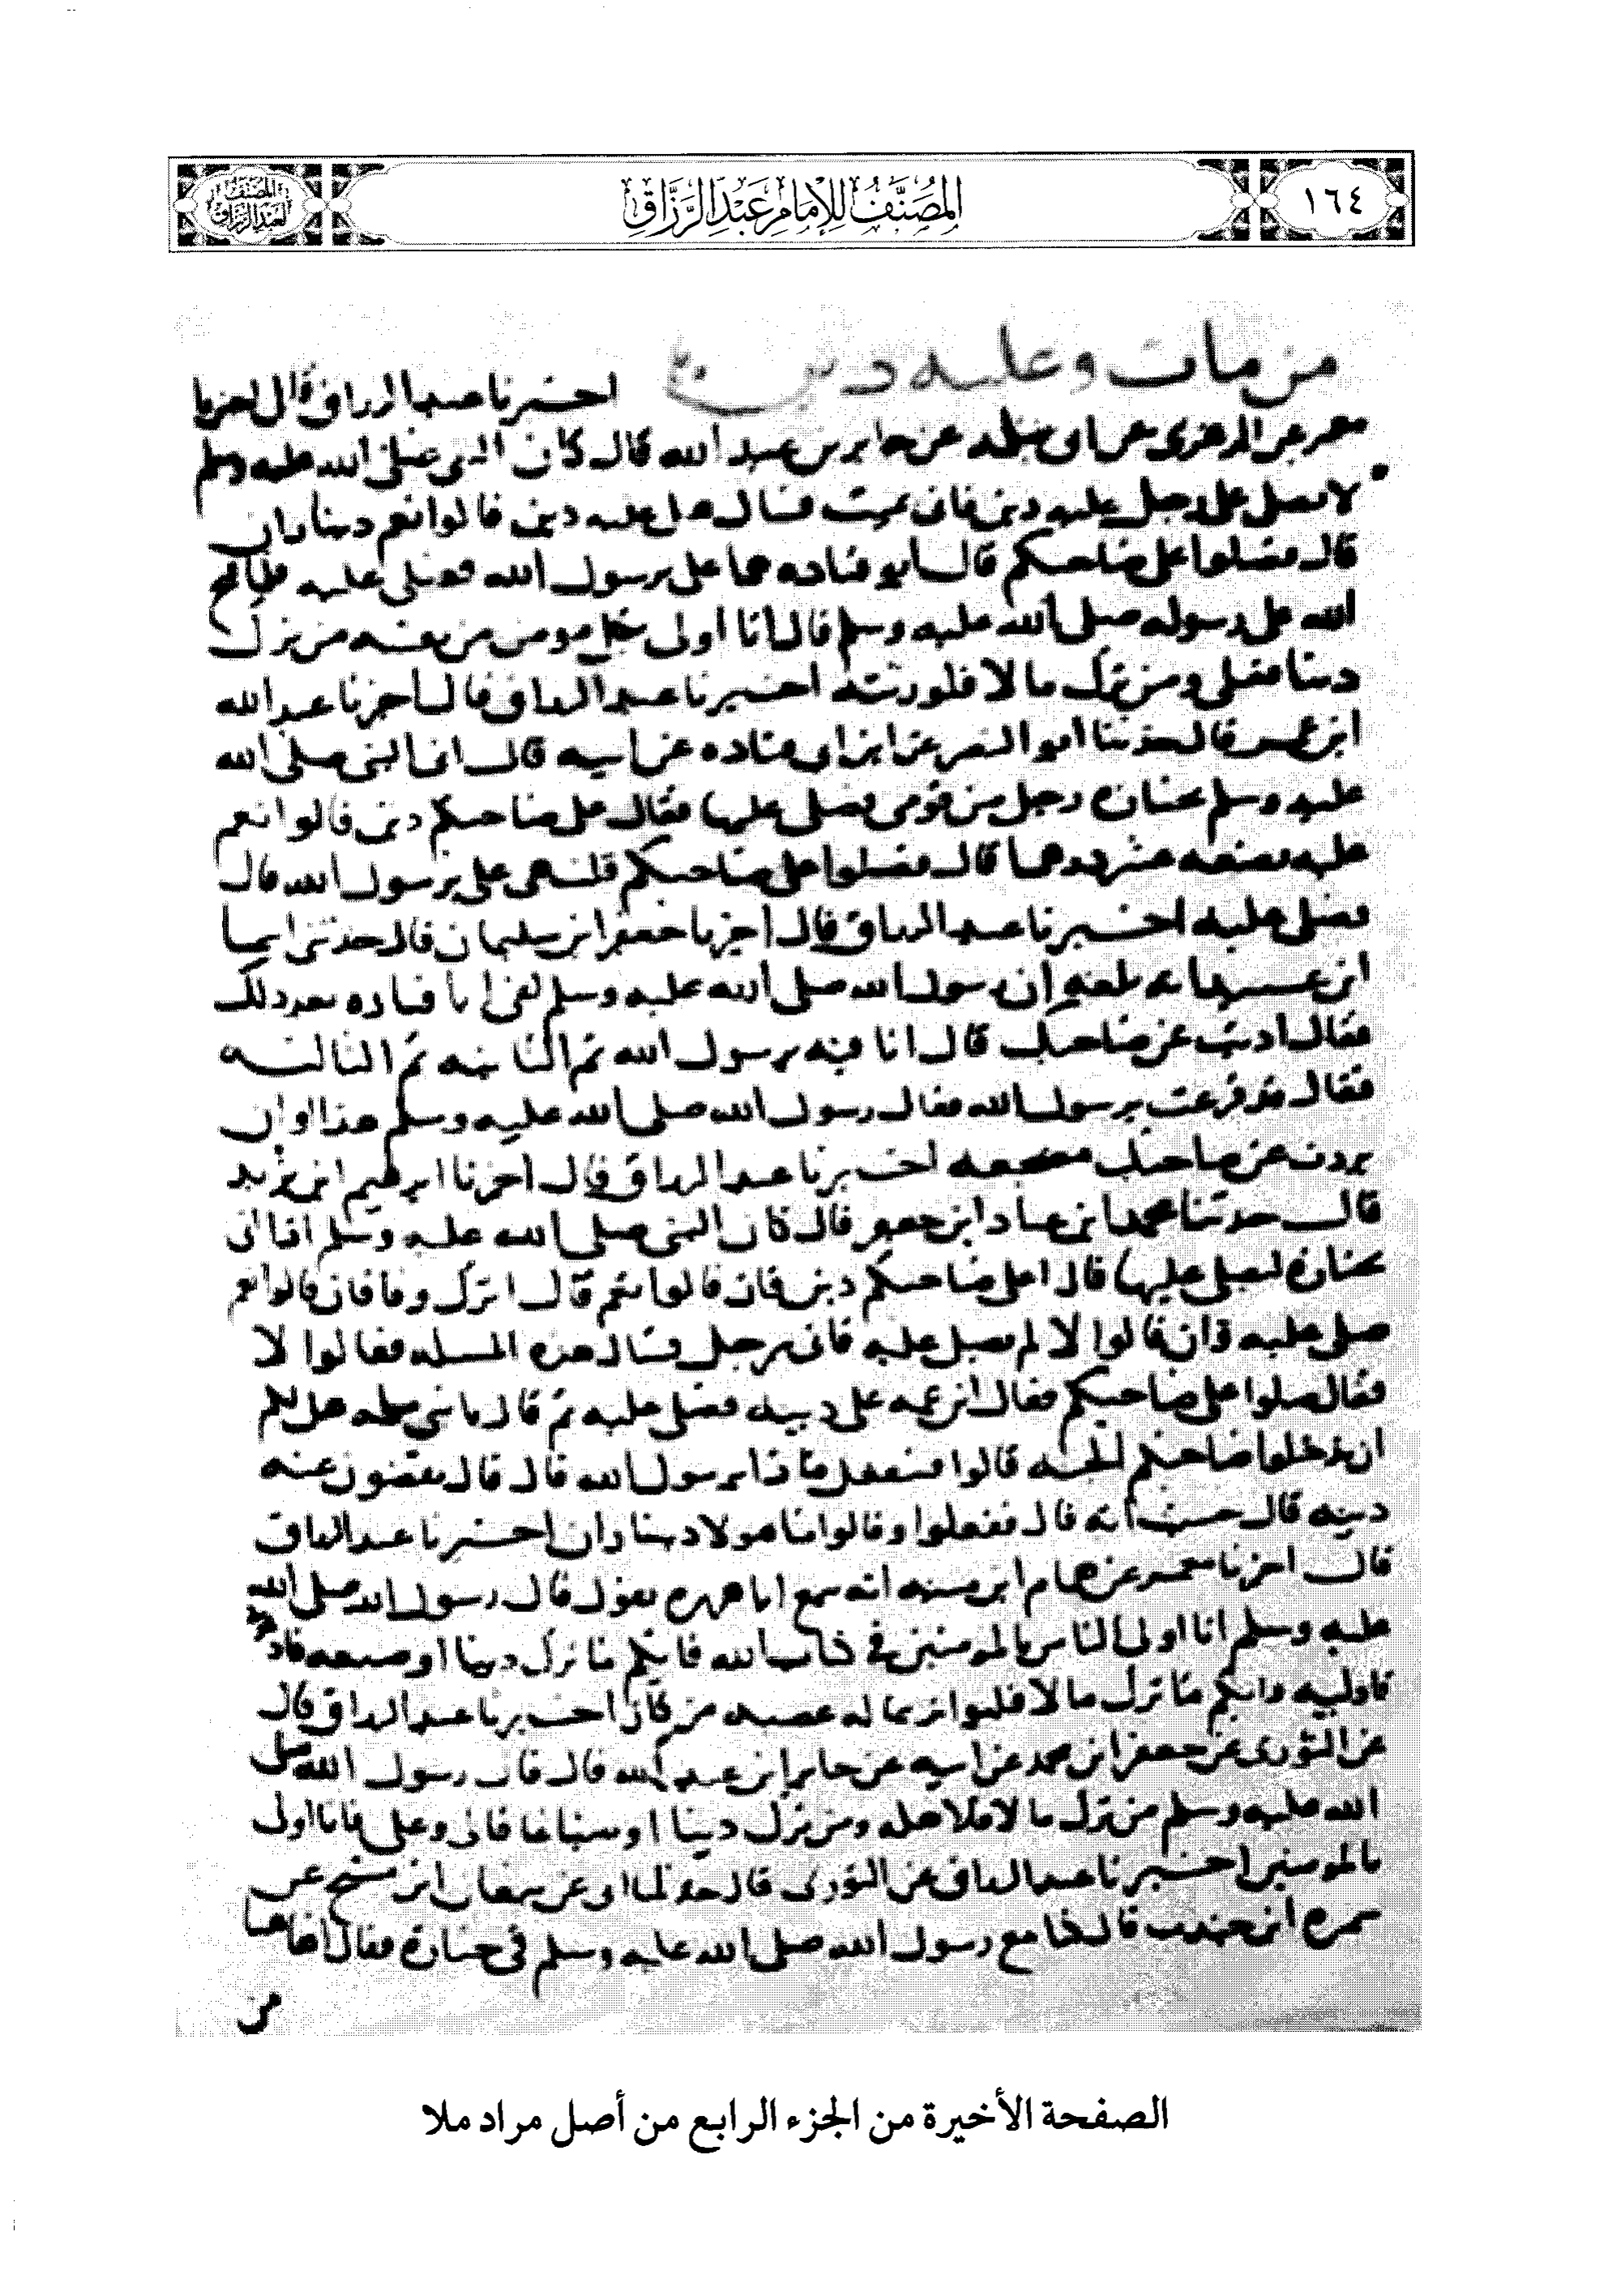 ١٦٤
المُصَنَّفُ لِلإِمَامِ عَبْدِ الرَّزَّاقِ
المصنف
لعبد الرزاق
من مات وعليه دين
احبرنا عبد الرراق قال احبرنا
معمر عن الزهري عن ابى سلمه عن جابر بن عبد الله قال كان النبى صلى الله عليه وسلم
لا يصلى على رجل عليه دين فاتى بميت فسال هل عليه دين قالوا نعم ديناران
قال فصلوا على صاحبكم قال ابو قتاده هما على يرسول الله فصلى عليه فلما فتح
الله على رسوله صلى الله عليه وسلم قال انا اولى بكل مومن من نفسه من ترك
دينا فعلى ومن ترك مالا فلورثته احبرنا عبد الرراق قال احبرنا عبد الله
ابن عمر قال حدثنا ابو النضر عن ابن ابى قتاده عن ابيه قال اتى النبى صلى الله
عليه وسلم بجنازه رجل من قومى يصلى عليها فقال على صاحبكم دين قالوا نعم
عليه بضعه عشر درهما قال فصلوا على صاحبكم قلت هى على يرسول الله قال
فصلى عليه احبرنا عبد الرراق قال احبرنا جعفر ابن سليمان قال حدثنى
ان رسول الله صلى الله عليه وسلم لقى ابا قتاده بعد ذلك
فقال اديت عن صاحبك قال انا فيه يرسول الله ثم الثانيه ثم الثالثه
فقال قد فرغت يرسول الله فقال رسول الله صلى الله عليه وسلم هذا اوان
بردت عن صاحبك مضجعه احبرنا عبد الرراق قال احبرنا ابرهيم ابن يزيد
قال حدثنا محمد ابن عباد ابن جعفر قال كان النبى صلى الله عليه وسلم اذا اتى
بجنازه ليصلى عليها قال اعلى صاحبكم دين فان قالوا نعم قال اترك وفا فان قالوا نعم
صلى عليه وان قالوا لا لم يصل عليه فاتى برجل فسال هذه المسله فقالوا لا
فقال صلوا على صاحبكم فقال ابن عمه على دينه فصلى عليه ثم قال يا بنى سلمه هل لكم
ان تدخلوا صاحبكم الجنه قالوا فنفعل ماذا يرسول الله قال قال تقضون عنه
دينه قال حسبت انه قال ففعلوا وقالوا ما هو الا ديناران احبرنا عبد الرراق
قال احبرنا معمر عن همام ابن منبه انه سمع ابا هريره يقول قال رسول الله صلى الله
عليه وسلم انا اولى الناس بالمومنين فى كتاب الله فايكم ما ترك دينا او ضيعه فادعونى
فاوليه وايكم ما ترك مالا فليوثر بماله عصبته من كان احبرنا عبد الرراق قال
عن الثورى عن جعفر ابن محمد عن ابيه عن جابر ابن عبد الله قال قال رسول الله صلى
الله عليه وسلم من ترك مالا فلاهله ومن ترك دينا او ضياعا فالى وعلى فانا اولى
بالمومنين احبرنا عبد الرراق عن الثورى قال حدثنا ابى عن سمعان ابن مشنج عن
سمره ابن جندب قال كنا مع رسول الله صلى الله عليه وسلم فى جنازة فقال اهاهنا
من
الصفحة الأخيرة من الجزء الرابع من أصل مراد ملا